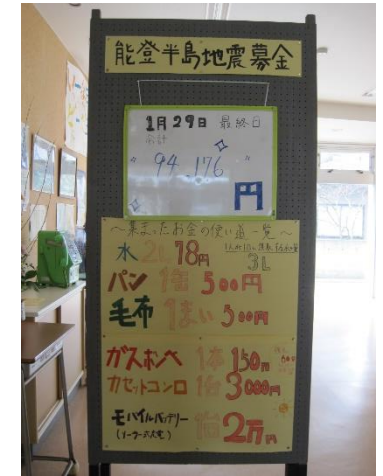 能登半島地震募金
1月29日 最終日
合計
94,176
円
～集まったお金の使い道一覧～
水 2L 18円
3L
パン 1個 500円
毛布 1まい 500円
ガスボンベ 1本 150円
カセットコンロ 1台 3000円
モバイルバッテリー 1個 2万円